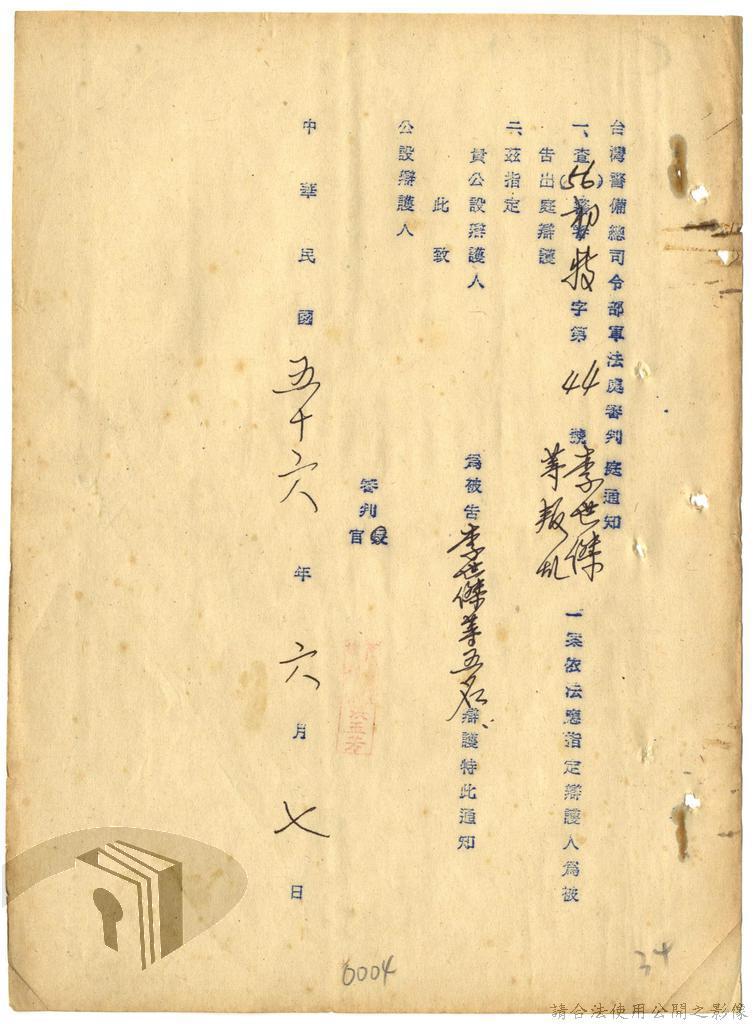 台灣警備總司令部軍法處審判庭通知
一、查(56)初特字第44號李世傑等叛乱一案依法應指定辯護人為被
告出庭辯護
二、茲指定
貴公設辯護人為被告李世傑等五名辯護特此通知
此致
公設辯護人
審判長
官
中華民國五十六年六月七日
0004
34
請合法使用公開之影像